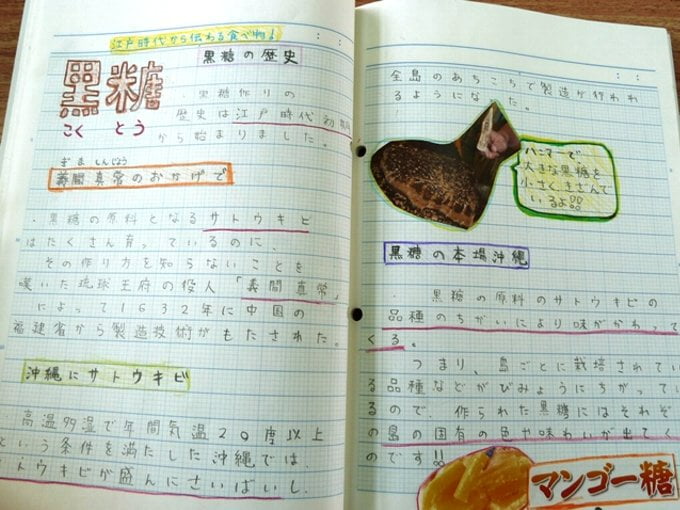 江戸時代から伝わる食べ物!
黒糖の歴史
黒糖
こく とう
・黒糖作りの
歴史は江戸時代初期
から始まりました。
ぎま しんじょう
義間真常のおかげで
・黒糖の原料となるサトウキビ
はたくさん育っているのに、
その作り方を知らないことを
嘆いた琉球王府の役人「義間真常」
によって1632年に中国の
福建省から製造技術がもたされた。
沖縄にサトウキビ
高温多湿で年間気温20度以上
という条件を満たした沖縄では、
サトウキビが盛んにさいばいし、
全島のあちこちで製造が行われ
るようになった。
ハンマーで、
大きな黒糖を
小さくきざんで
いるよ!!
黒糖の本場沖縄
・黒糖の原料のサトウキビの
品種のちがいにより味がかわって
くる。
つまり、島ごとに栽培されてい
る品種などがびみょうにちがってい
るので、作られた黒糖にはそれぞ
の島の固有の色や味わいが出てく
のです!!
マンゴー糖